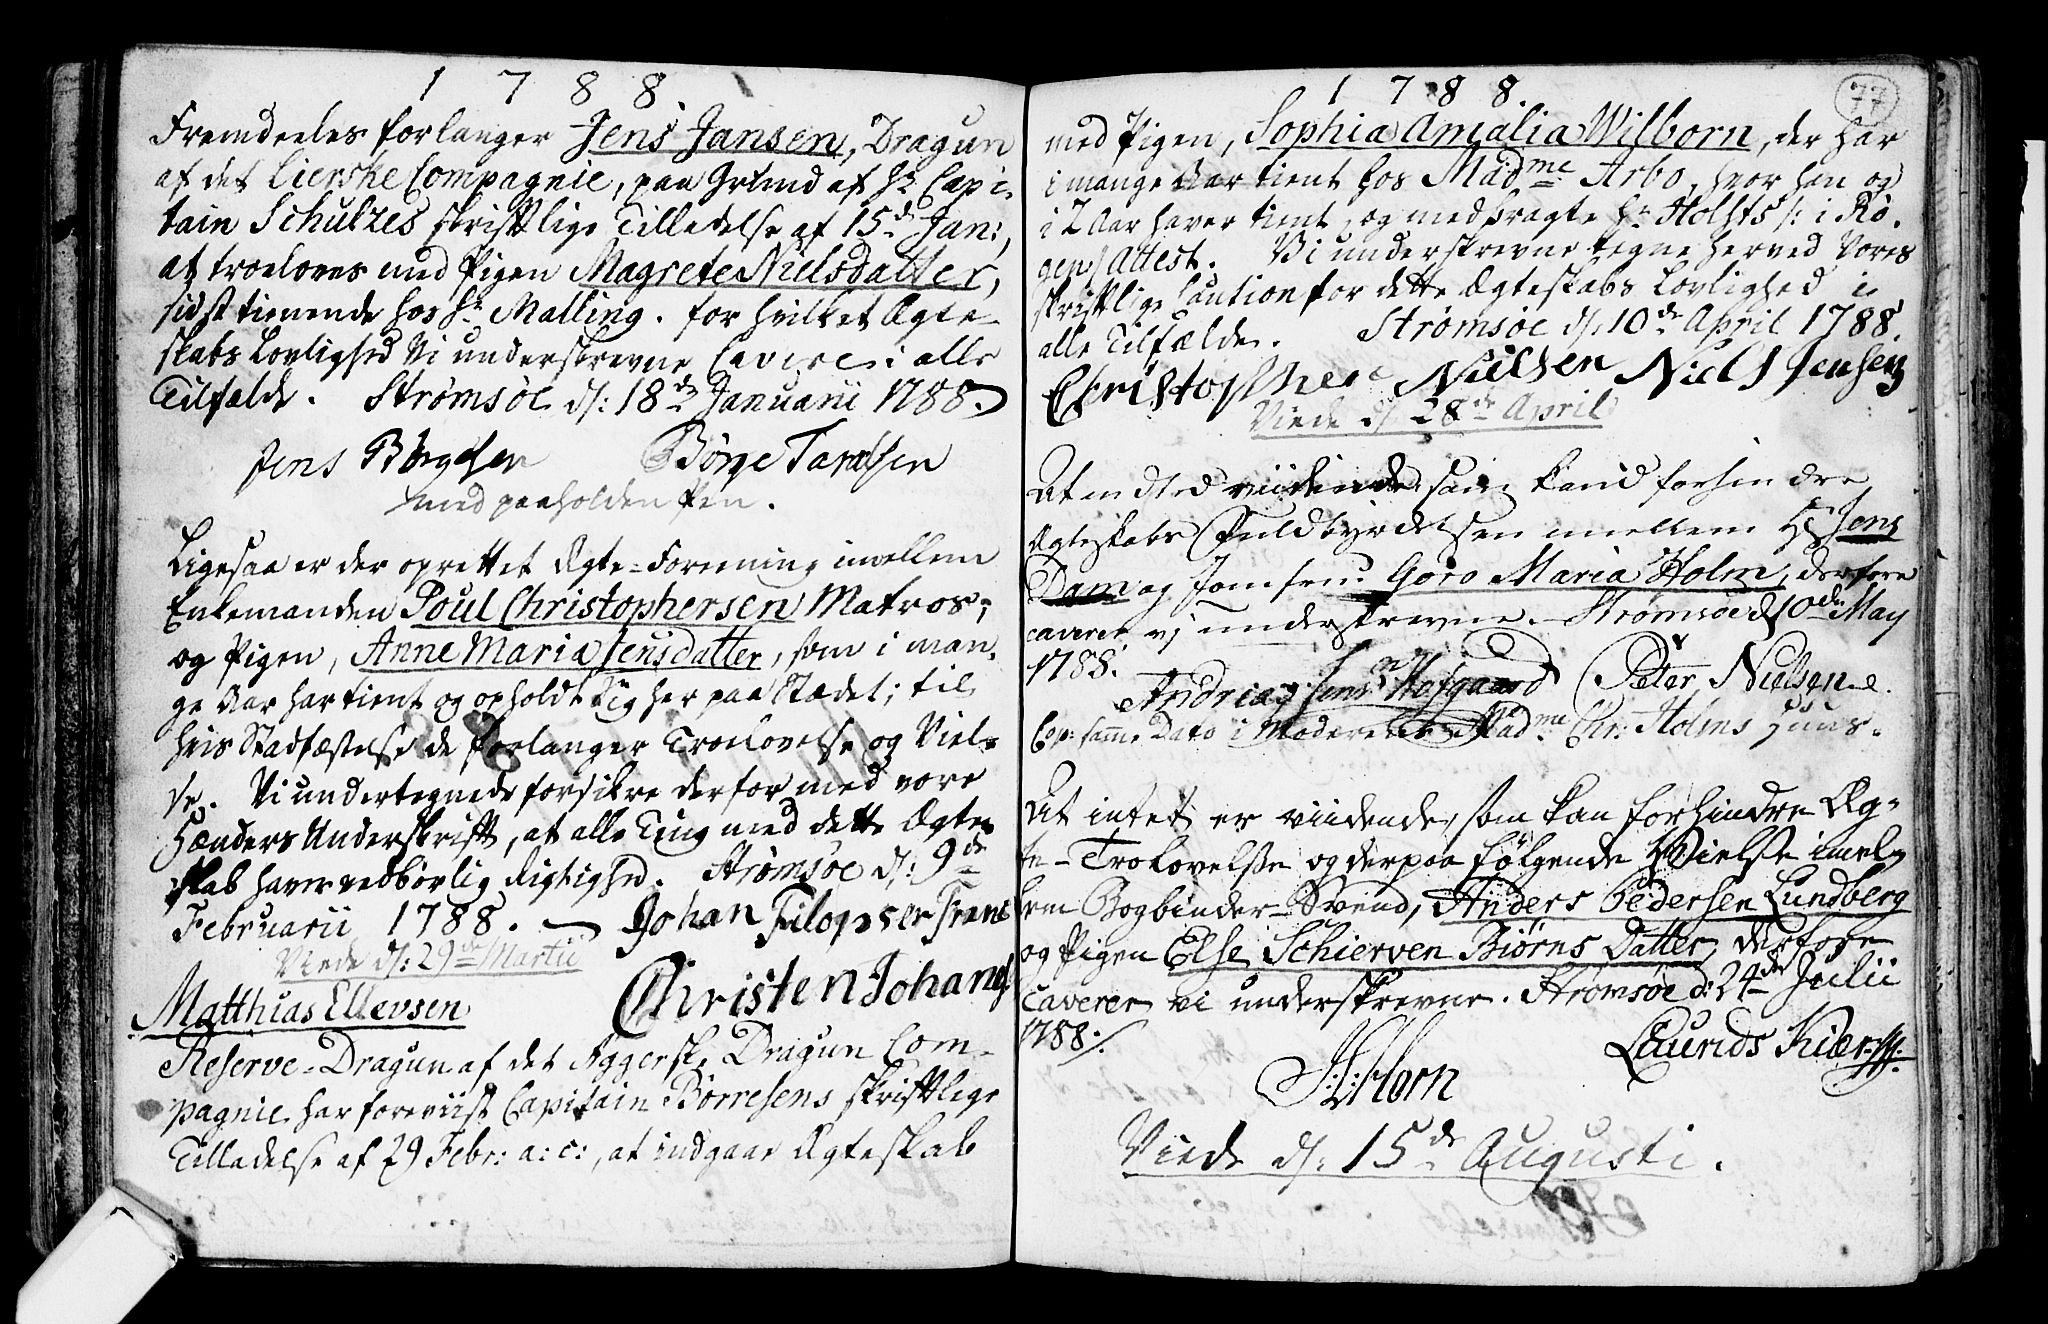 1788.
Fremdeeles forlanger Jens Jansen, Dragun
af det Lierske Compagnie, paa Grund af Hr. Capi-
tain Schultzes skriftlige Tilladelse af 15de Jan:,
at troeloves med Pigen Magrete Nielsdatter,
sidst tienende hos Hr. Malling. for hvilket Ægte-
skabs Lovlighed Vi underskrevne Cavere i alle
Tilfælde. Strømsøe d: 18de Januarii 1788.
Jens Børgesen Børge Taraldsen
med paaholden Pen.
Ligesaa er der oprettet Ægte-Forening imellem
Enkemanden Poul Christophersen Matros,
og Pigen, Anne Maria Jensdatter, som i man-
ge Aar har tient og opholdt sig her paa Stædet; til
hvis Stadfæstelse de forlanger Troelovelse og Viel-
se. Vi undertegnede forsikre derfor med vore
Hænders Underskrift, at alle Ting med dette Ægte-
skab haver vedbørlig Rigtighed. Strømsøe d: 9de
Februarii 1788. Johan Filopser
Viede d: 29de Martii
Christen Johans
Matthias Ellevsen
Reserve-Dragun af det Aggersk. Dragun Com-
pagnie har foreviist Capitain Børresens skriftlige
Tilladelse af 29 Febr: a: c:, at indgaae Ægteskab
77
1788.
med Pigen, Sophia Amalia Wilborn, der har
i mange Aar tient hos Madme Arbo, hvor han og
i 2 Aar haver tient, og medbragte Hr. Holsts /: i Rø-
gen/ Attest. Vi underskrevne tegne herved Vores
skriftlige Caution for dette Ægteskabs Lovlighed i
alle Tilfælde. Strømsøe d: 10de April 1788.
Christopher Nielsen Niels Jensen
Viede d: 28de April
At intet viidende som kand forhindre
Ægteskabs Fuldbyrdelsen imellem Hr Jens
Dam og Jomfru Goro Maria Holm, derfore
caverer vj underskrevne. Strømsøe d May
1788.
Andrias Jens Hofgaard Peter Nielsen
Cop: samme Dato i Moderens Madme Chr: Holms Huus.
At intet er viidende, som kan forhindre Æg-
te-Trolovelse og derpaa følgende Vielse imel-
lem Bogbinder-Svend, Anders Pedersen Lundberg
og Pigen Else Schierven Biørns Datter, derfore
Caverer vi underskrevne. Strømsøe d: 24de Julii
1788.
Laurids Kiær
Viede d: 15de Augusti.